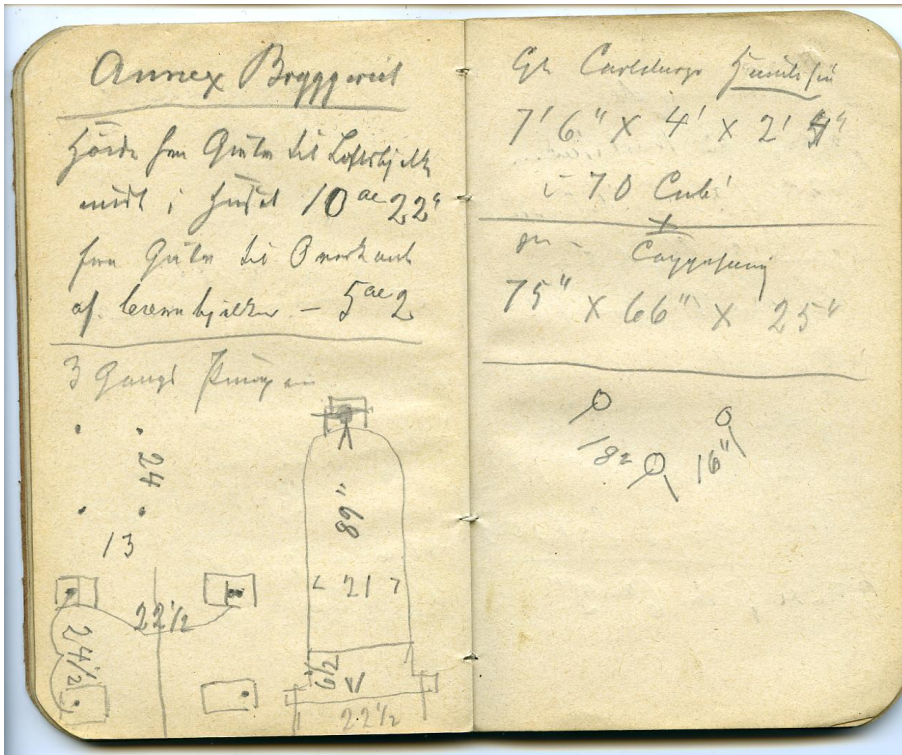 Annex Bryggeriet
Høide fra Gulv til Loftsbjelk
midt i Huset 10 al 22"
fra Gulv til Overkant
af bærebjelker — 5 al 2
3 Gangs
24
13
22 1/2
24 1/2
89"
21
6 1/2
22 1/2
Gl. Carlsberg
7' 6" x 4' x 2'
70 Cub'
75" x 66" x 25"
18"
16"